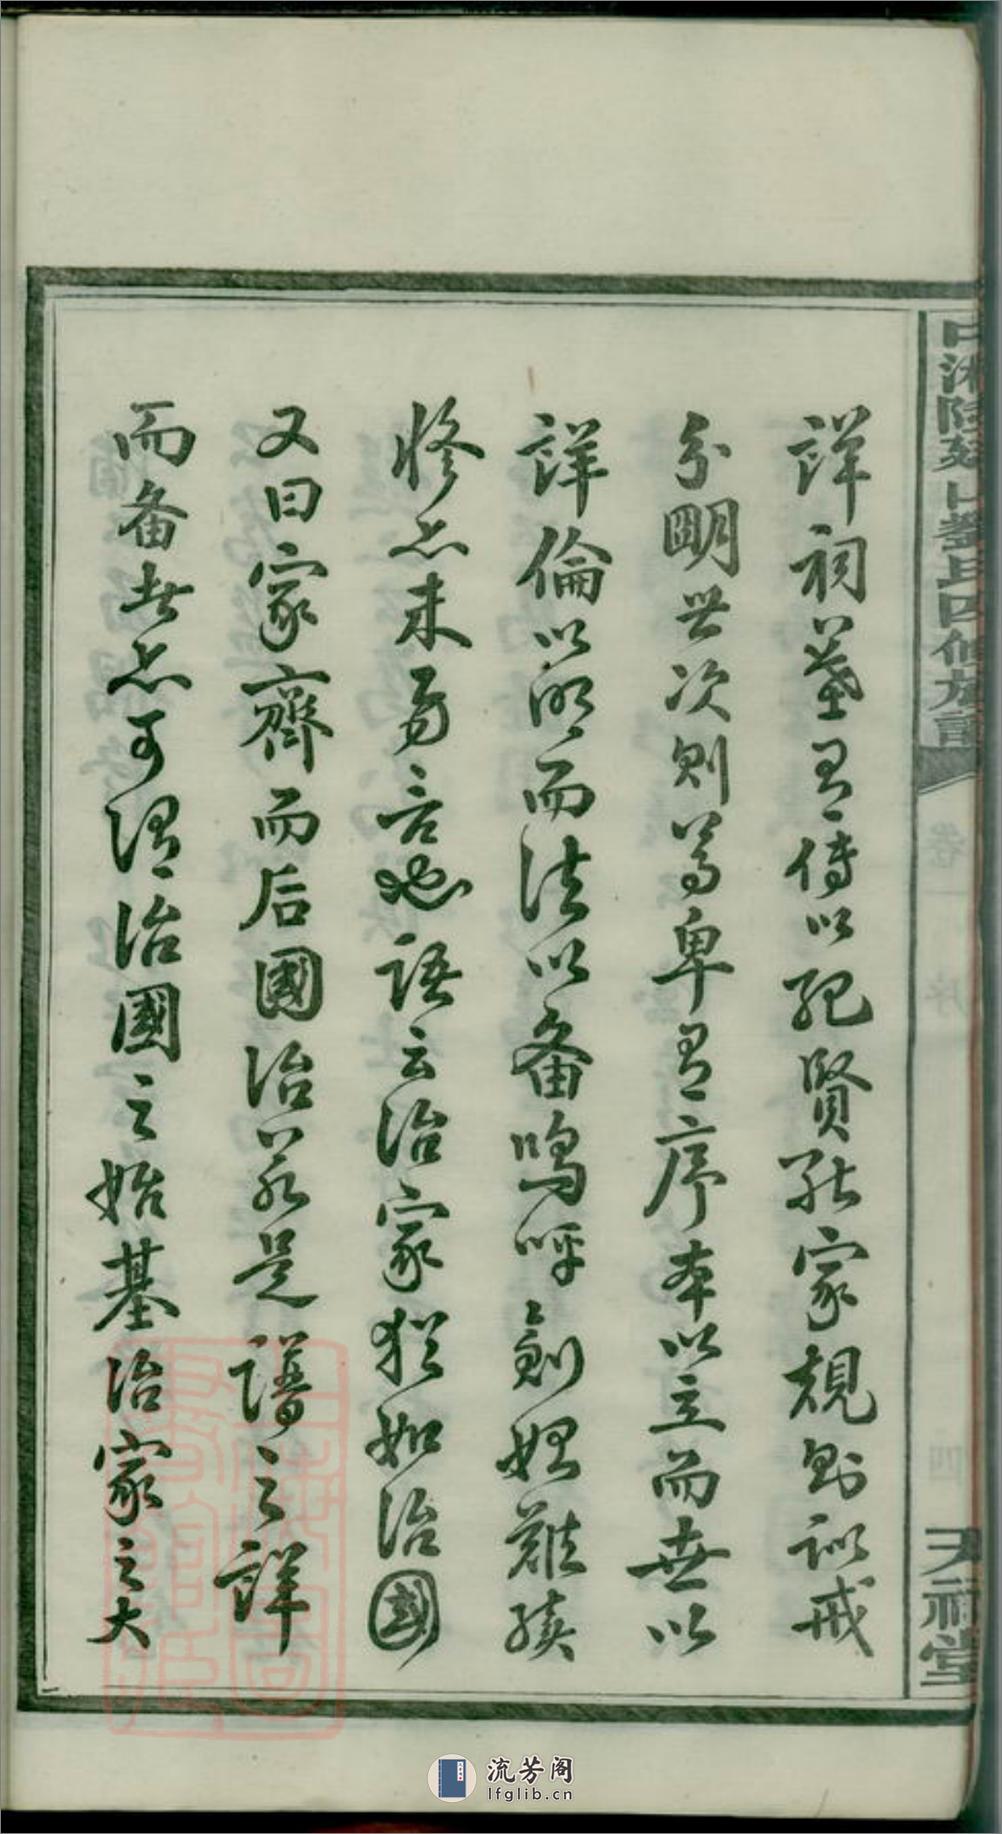 詳祠墓有傳以記賢能家規則訓戒
分明世次則尊卑有序本以立而世以
詳倫以明而法以备嗚呼創始難續
修亦未易言也語云治家猶如治國
又曰家齊而后國治若是譜之詳
而备者亦可谓治國之始基治家之大
中湘陵廷山劉氏四修族譜
卷一
序
四
天祿堂
流芳阁
lfglib.cn